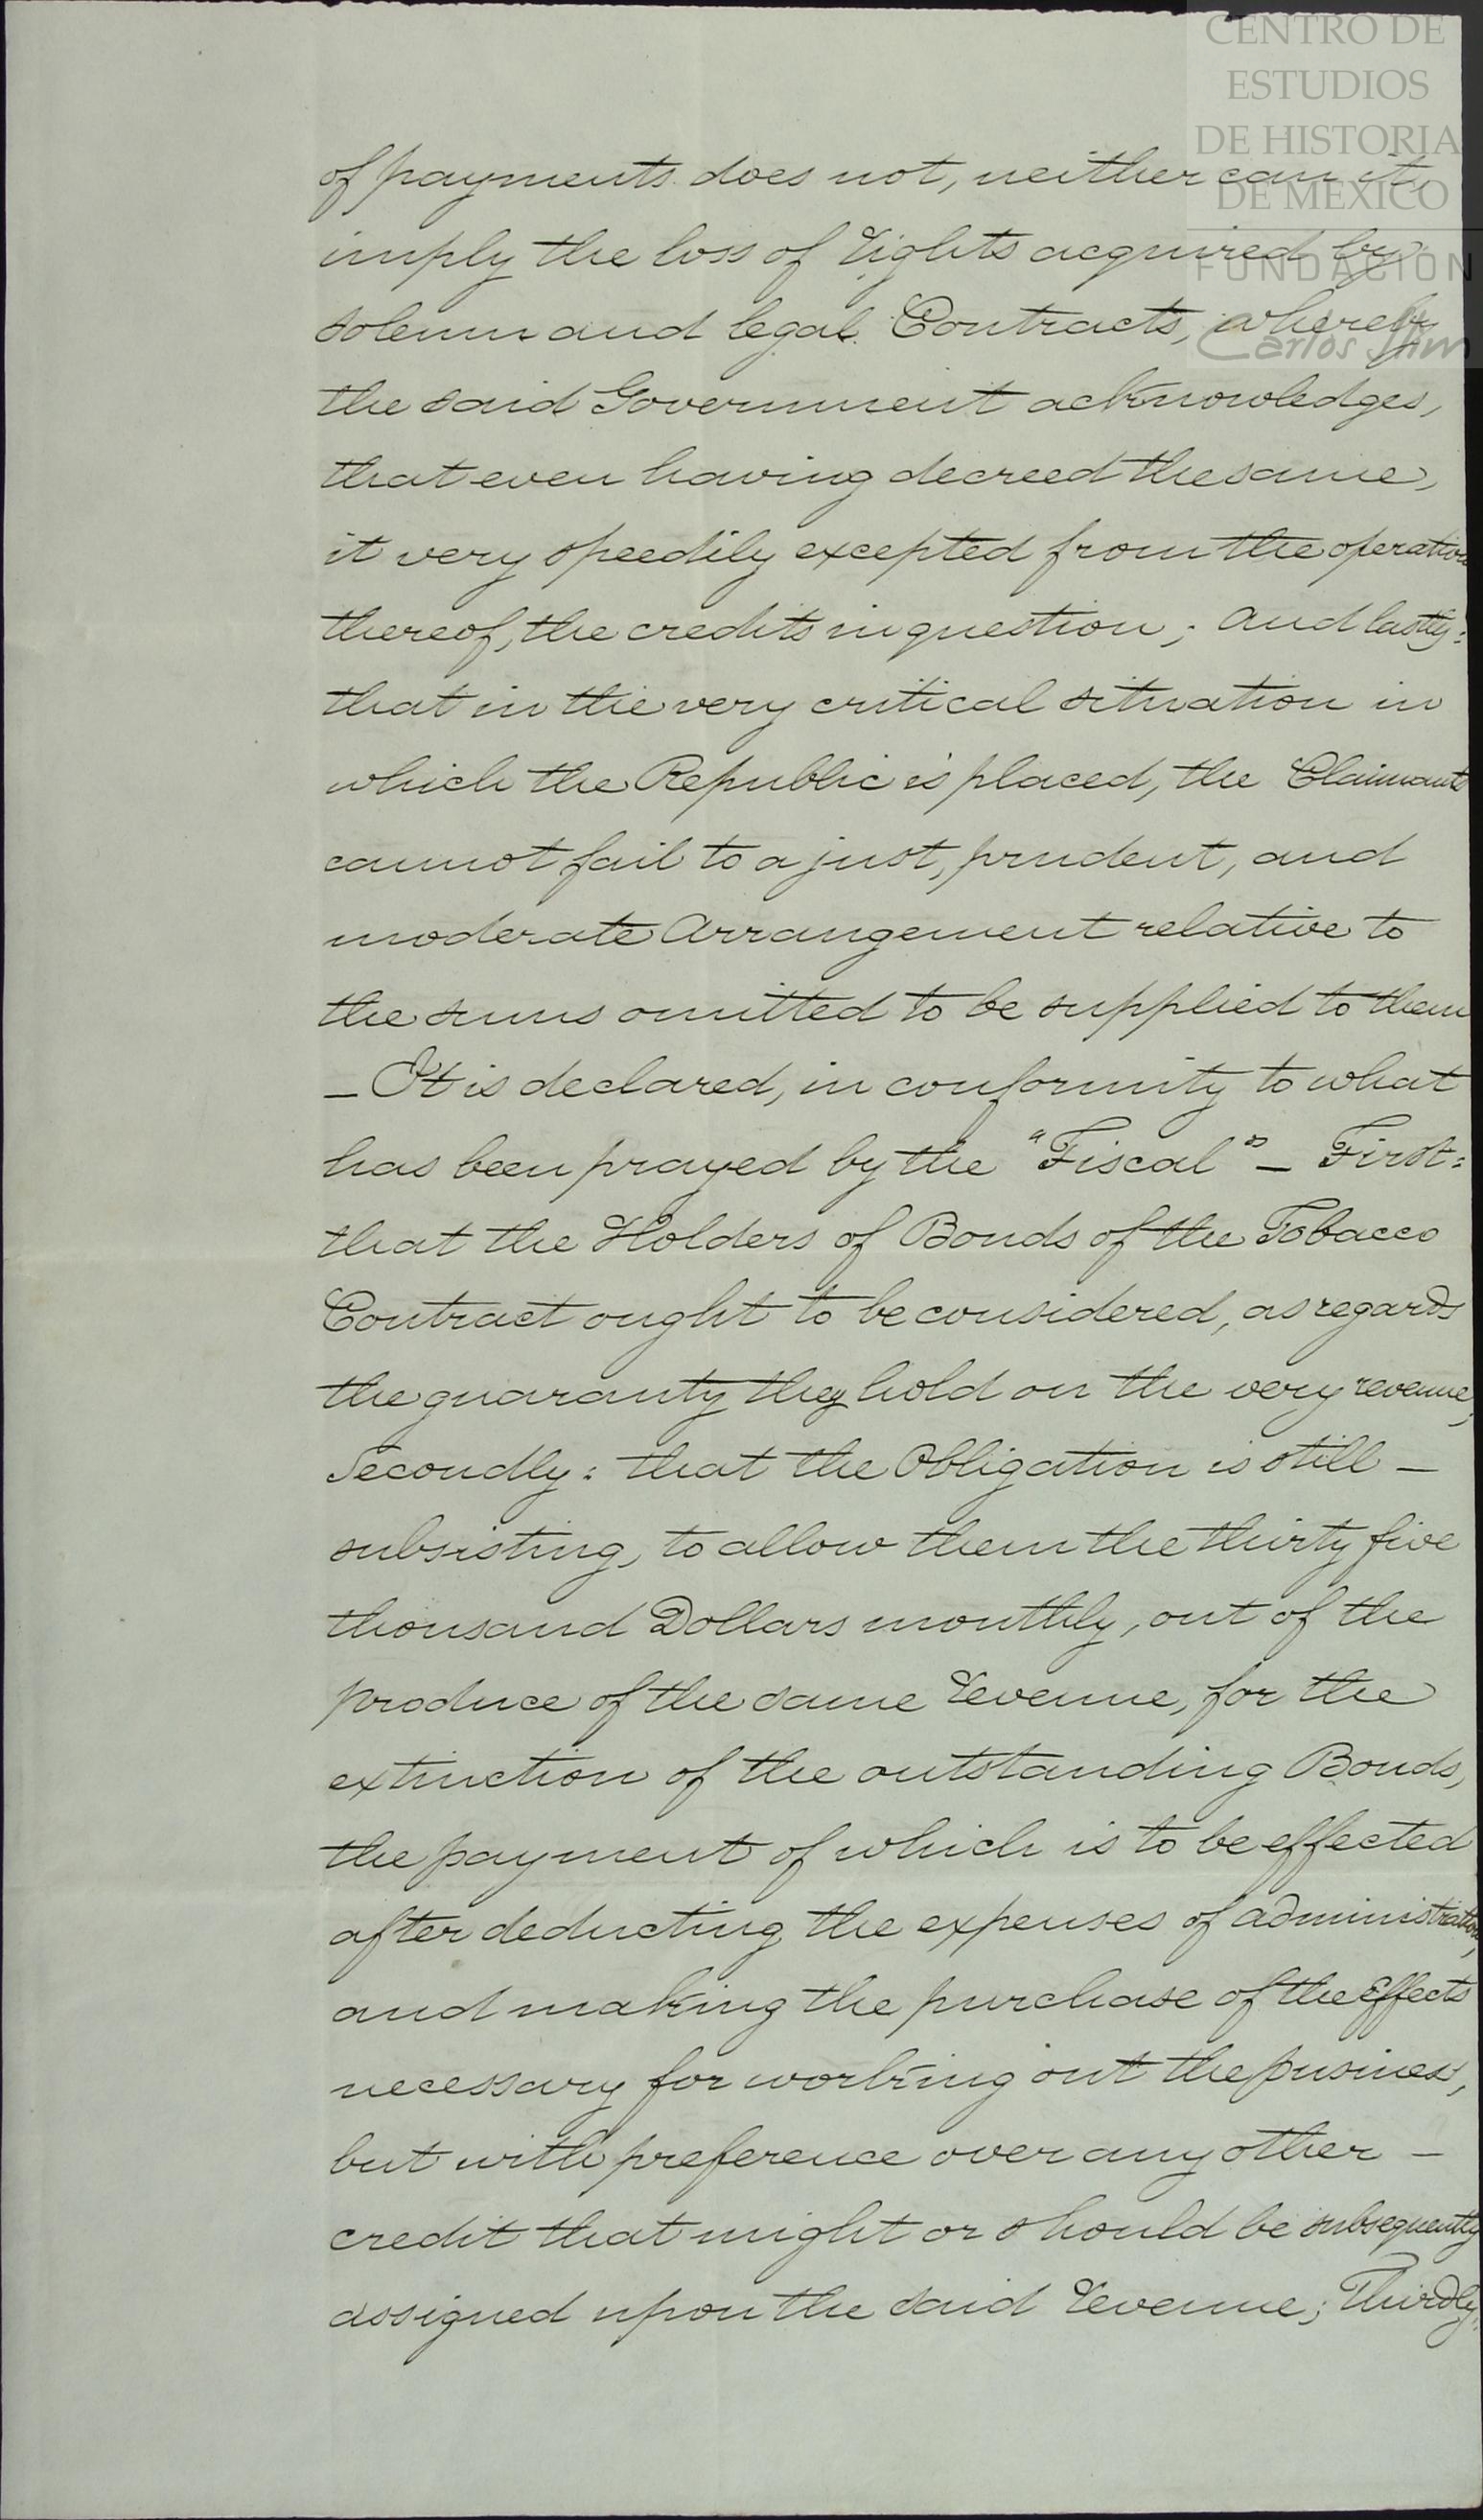 CENTRO DE
ESTUDIOS
DE HISTORIA
DE MEXICO
FUNDACION
Carlos Slim
of payments does not, neither can it,
imply the loss of rights acquired by
solemn and legal Contracts, whereby
the said Government acknowledges,
that even having decreed the same,
it very speedily excepted from the operation
thereof, the credits in question; and lastly:
that in the very critical situation in
which the Republic is placed, the Claimants
cannot fail to a just, prudent, and
moderate Arrangement relative to
the sums omitted to be supplied to them
— It is declared, in conformity to what
has been prayed by the "Fiscal" — First:
that the Holders of Bonds of the Tobacco
Contract ought to be considered, as regards
the guaranty they hold on the very revenue,
Secondly: that the Obligation is still —
subsisting, to allow them the thirty five
thousand Dollars monthly, out of the
produce of the same Revenue, for the
extinction of the outstanding Bonds,
the payment of which is to be effected
after deducting the expenses of administration,
and making the purchase of the Effects
necessary for working out the business,
but with preference over any other —
credit that might or should be subsequently
assigned upon the said Revenue; Thirdly: